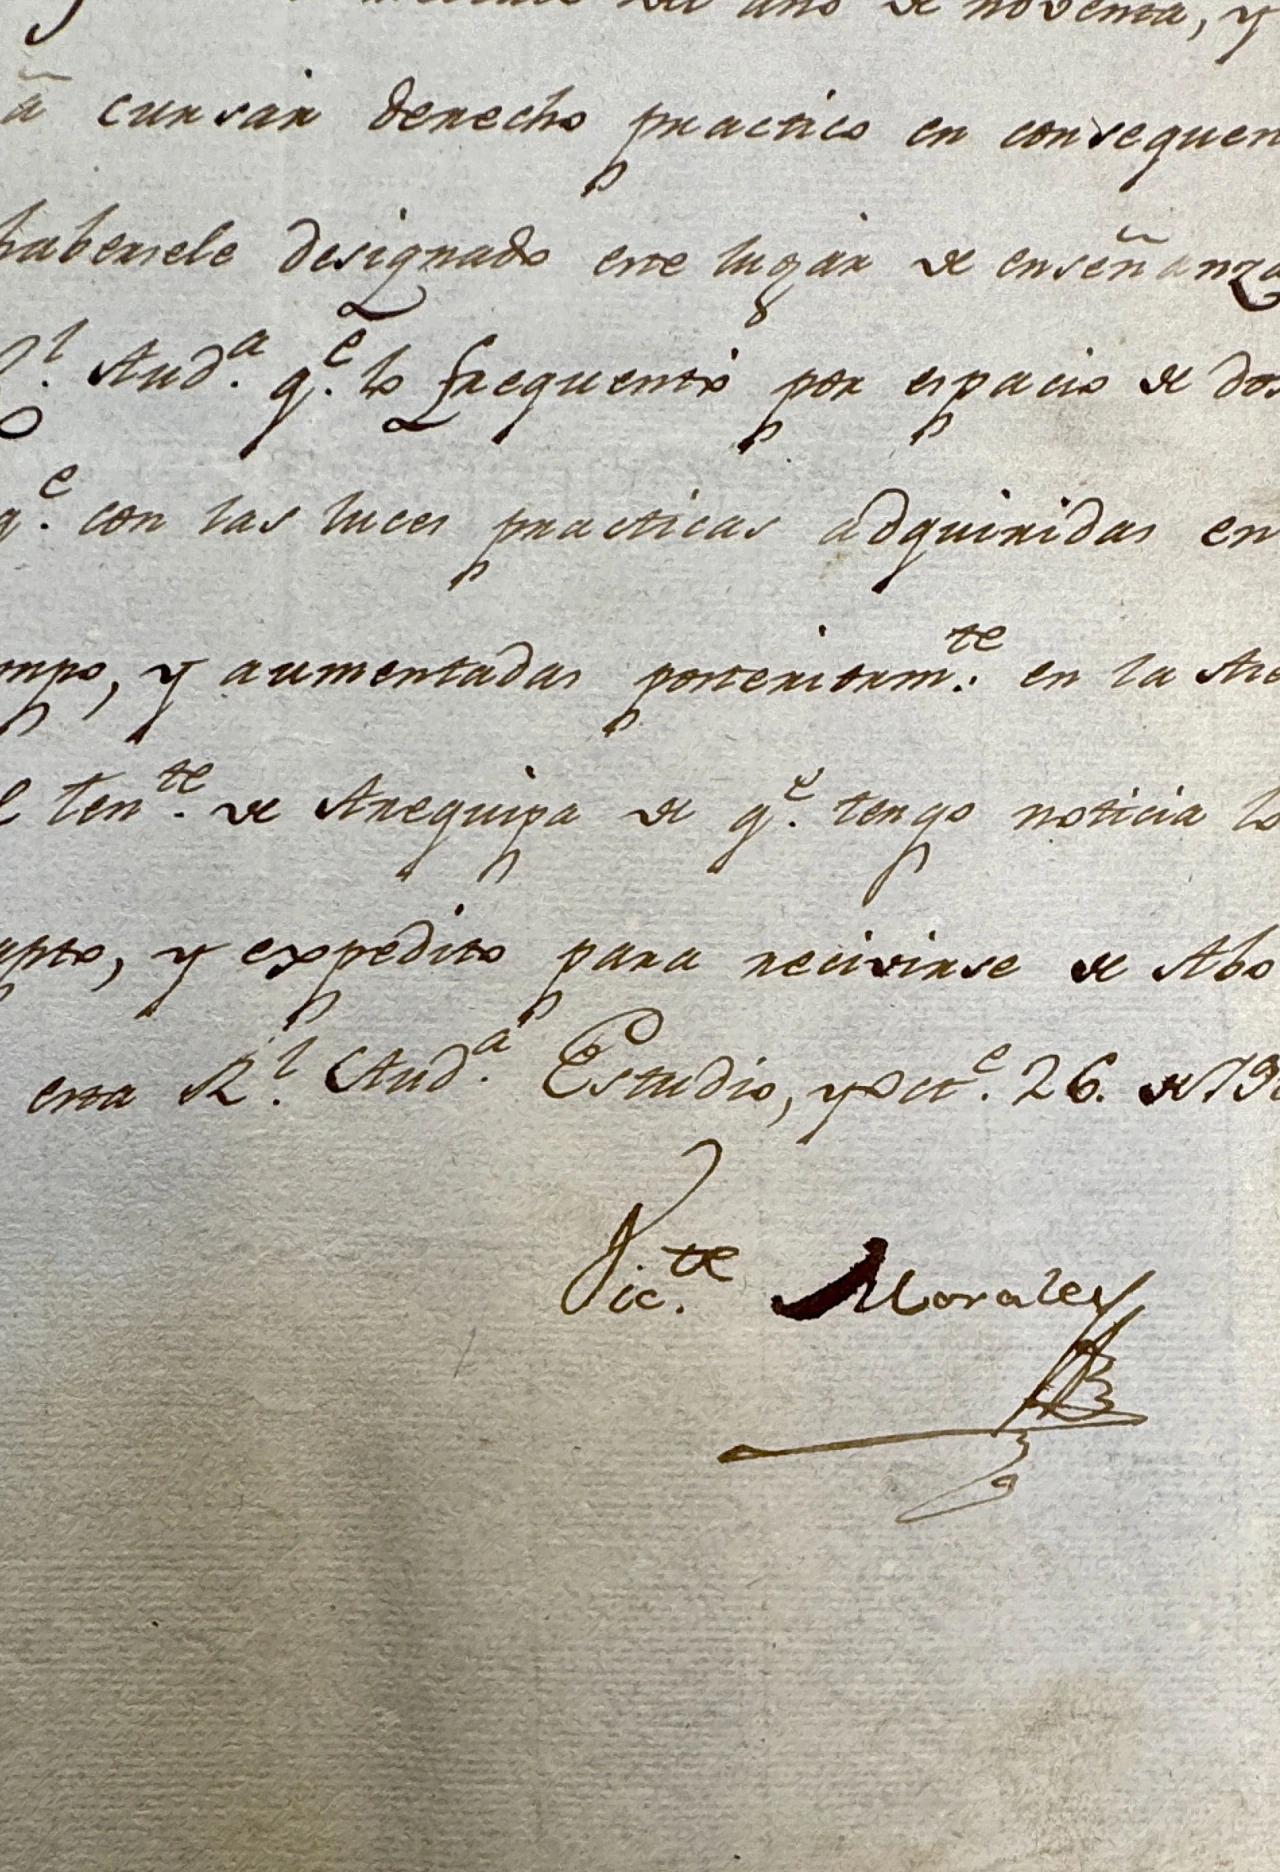 del año de noventa, y
a cursar derecho practico en consequen
habersele designado este lugar de enseñanza
Rl. Auda. qe. lo frequentó por espacio de dos
qe. con las luces practicas adquiridas en
mpo, y aumentadas posteriorm.te en la
l Tente. de Arequipa de qe. tengo noticia lo
apto, y expedito para recivirse de Abo
esta Rl. Auda. Estudio, y Oct.e 26. de 179
Vic.te Morales